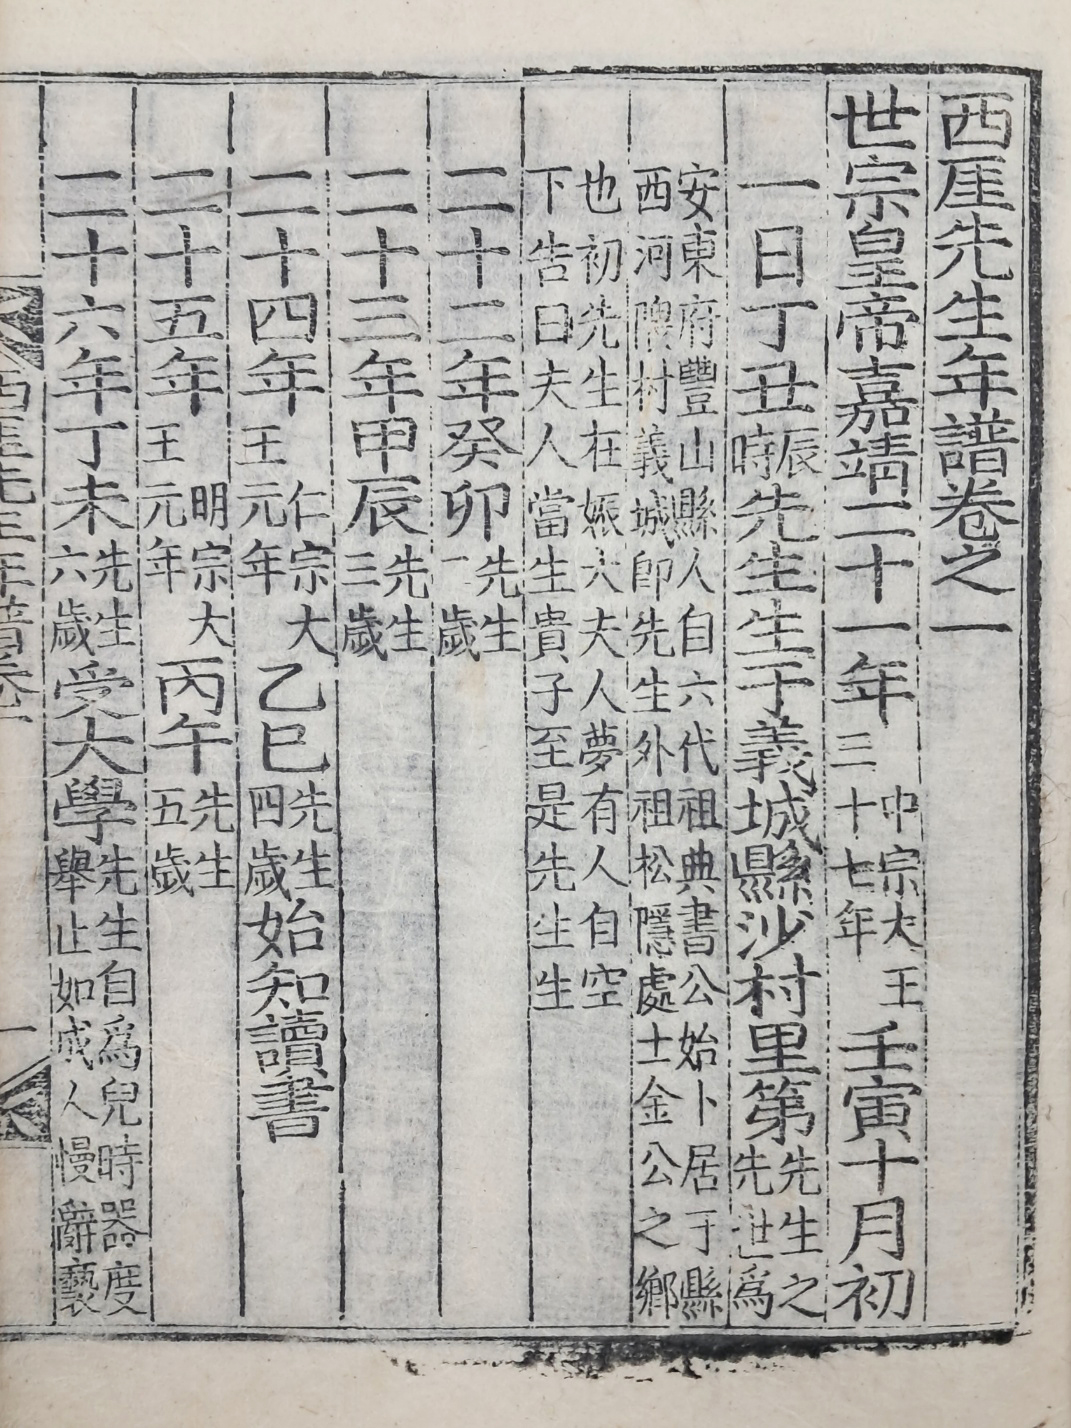 西厓先生年譜卷之一
世宗皇帝嘉靖二十一年中宗大王三十七年壬寅十月初
一日丁丑辰時先生生于義城縣沙村里第先生之先世爲
安東府豐山縣人自六代祖典書公始卜居于縣
西河隈村義城卽先生外祖松隱處士金公之鄉
也初先生在娠大夫人夢有人自空
下告曰夫人當生貴子至是先生生
二十二年癸卯先生一歲
二十三年甲辰先生三歲
二十四年仁宗大王元年乙巳先生四歲始知讀書
二十五年明宗大王元年丙午先生五歲
二十六年丁未先生六歲受大學先生自爲兒時器度舉止如成人慢辭褻
西厓先生年譜卷一
一